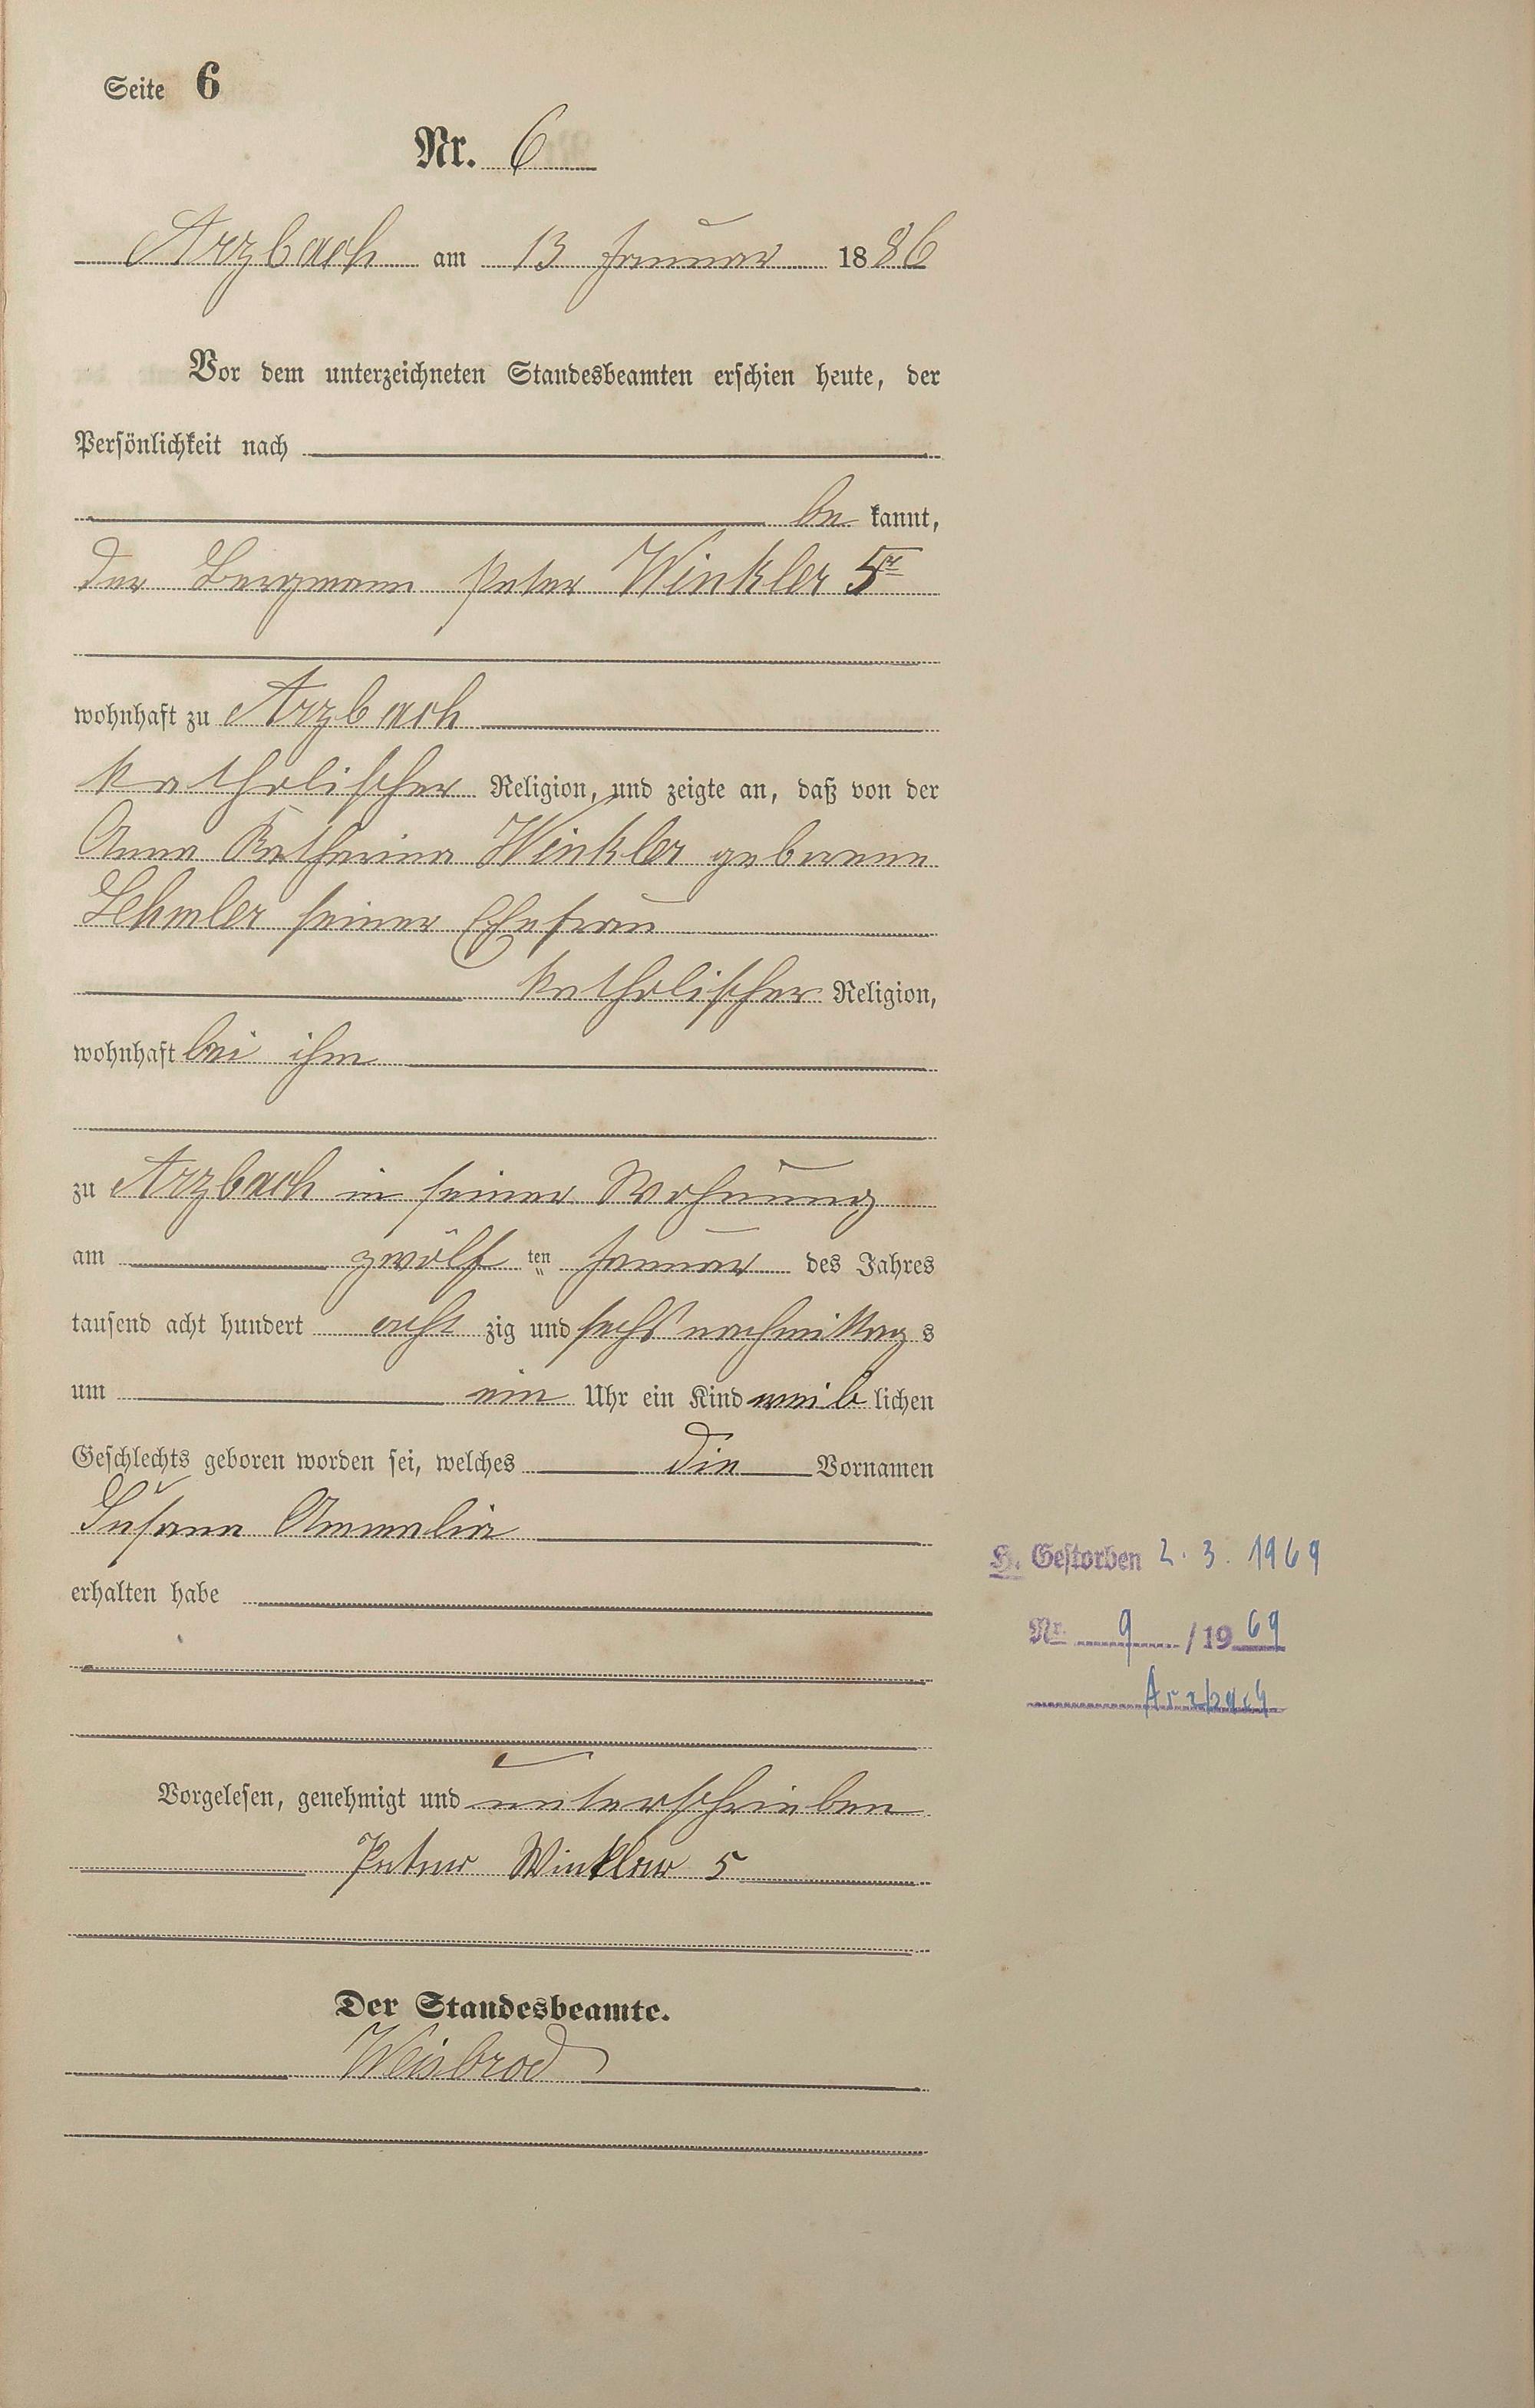 Seite 6
Nr. 6
Arzbach am 13 Januar 1886
Vor dem unterzeichneten Standesbeamten erschien heute, der
Persönlichkeit nach
be kannt,
der Bergmann Peter Winkler 5r
wohnhaft zu Arzbach
katholischer Religion, und zeigte an, daß von der
Anna Katharina Winkler geborene
Lehmler seiner Ehefrau
katholischer Religion,
wohnhaft bei ihm
zu Arzbach in seiner Wohnung
am zwölf ten Januar des Jahres
tausend acht hundert acht zig und sechs nachmittags
um ein Uhr ein Kind weib lichen
Geschlechts geboren worden sei, welches die Vornamen
Susana Ammalia
erhalten habe
H. Gestorben 2. 3. 1969
Nr. 9 / 1969
Arzbach
Vorgelesen, genehmigt und unterschrieben
Peter Winkler 5
Der Standesbeamte.
Weisbrod